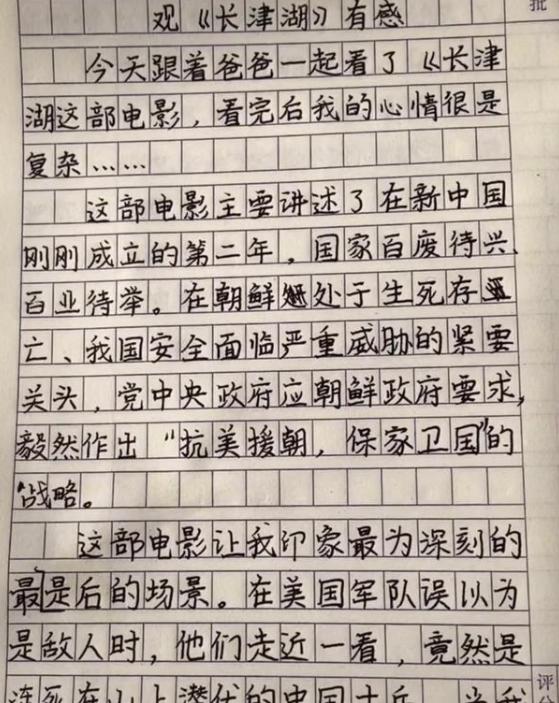 批
观《长津湖》有感
今天跟着爸爸一起看了《长津
湖这部电影，看完后我的心情很是
复杂……
这部电影主要讲述了在新中国
刚刚成立的第二年，国家百废待兴、
百业待举。在朝鲜处于生死存
亡、我国安全面临严重威胁的紧要
关头，党中央政府应朝鲜政府要求，
毅然作出“抗美援朝，保家卫国”的
战略。
这部电影让我印象最为深刻的
最是后的场景。在美国军队误以为
是敌人时，他们走近一看，竟然是
冻死在山上潜伏的中国士兵。当我
评